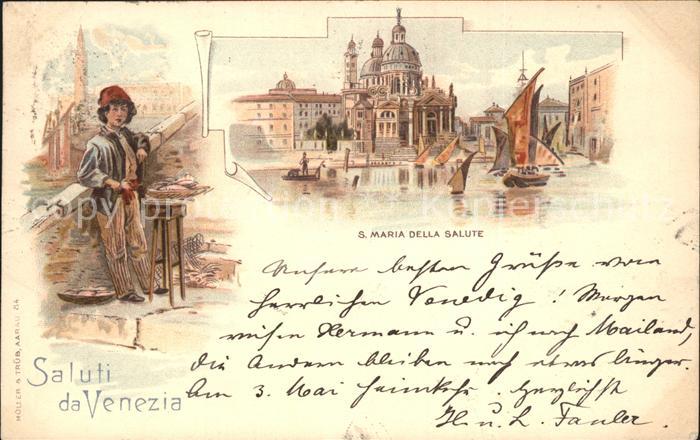 S. MARIA DELLA SALUTE
Unsere besten Grüße vom
herrlichen Venedig! Morgen
reisen Hermann u. ich nach Mailand,
die Andern bleiben noch etwas länger.
Am 3. Mai Heimkehr. Herzlichst
H. u. L. Fauler.
Saluti
da Venezia
MÜLLER & TRÜB, AARAU. 64
copyright Kopierschutz